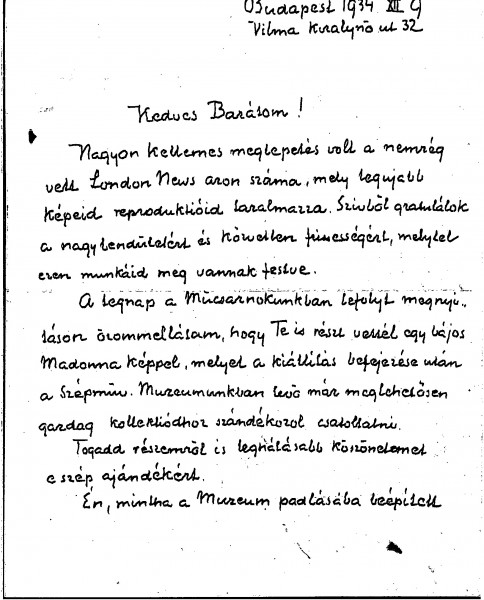 Budapest 1934 XII 9
Vilma Királynő ut 32
Kedves Barátom!
Nagyon kellemes meglepetés volt a nemrég
vett London News azon száma, mely legujabb
képeid reproduktióid taralmazza. Szivből gratulálok
a nagy lendületért és közvetlen finességért, melylyel
ezen munkáid meg vannak festve.
A tegnap a Mücsarnokunkban lefolyt megnyi-
táson örömmel láttam, hogy Te is részt vettél egy bájos
Madonna képpel, melyet a kiállítás befejezése után
a Szépműv. Muzeumunkban levő már meglehetősen
gazdag kollektiódhoz szándékozol csatoltatni.
Fogadd részemről is leghálásabb köszönetemet
e szép ajándékért.
Én, mintha a Muzeum padlásába beépített